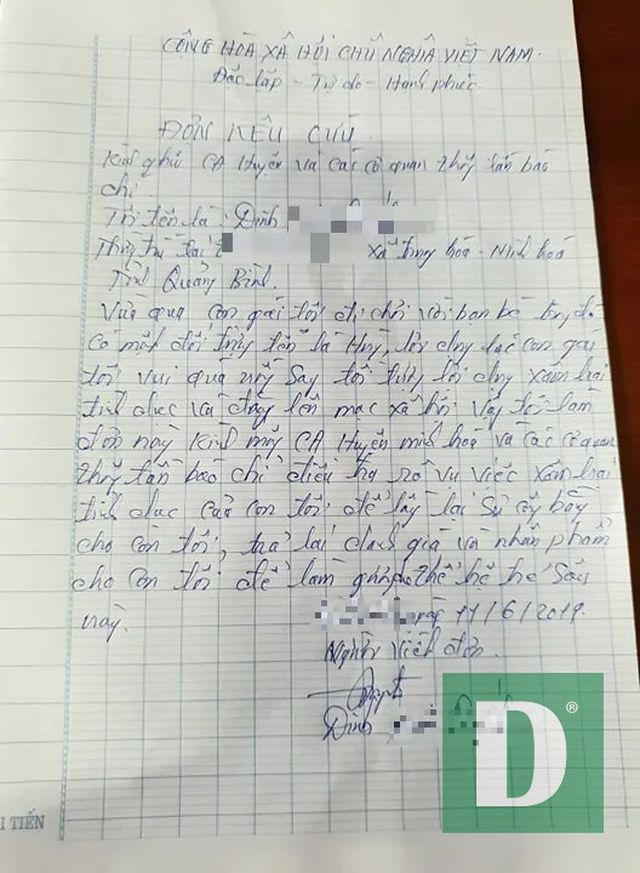 CỘNG HÒA XÃ HỘI CHỦ NGHĨA VIỆT NAM.
Độc lập - Tự do - Hạnh phúc.
ĐƠN KÊU CỨU
Kính gửi CA Huyện và các cơ quan thông tấn báo
chí
Tôi tên là: Đinh
Thường trú tại: xã trung hoá - Minh hoá
Tỉnh Quảng Bình.
Vừa qua con gái tôi đi chơi với bạn bè
có một đối tượng tên là Huy, lợi dụng lúc con gái
tôi vui quá nỗi say tối tượng lợi dụng xâm hại
tình dục và đăng lên mạc xã hội vậy tôi làm
đơn này kính mong CA Huyện minh hoá và các cơ quan
thông tấn báo chí điều tra rõ vụ việc xâm hại
tình dục của con tôi để lấy lại sự công bằng
cho con tôi, trả lại danh giá và nhân phẩm
cho con tôi để làm gương cho thế hệ trẻ sau
này.
ngày 11/6/2019.
Người viết đơn.
Đinh
D®
I TIẾN